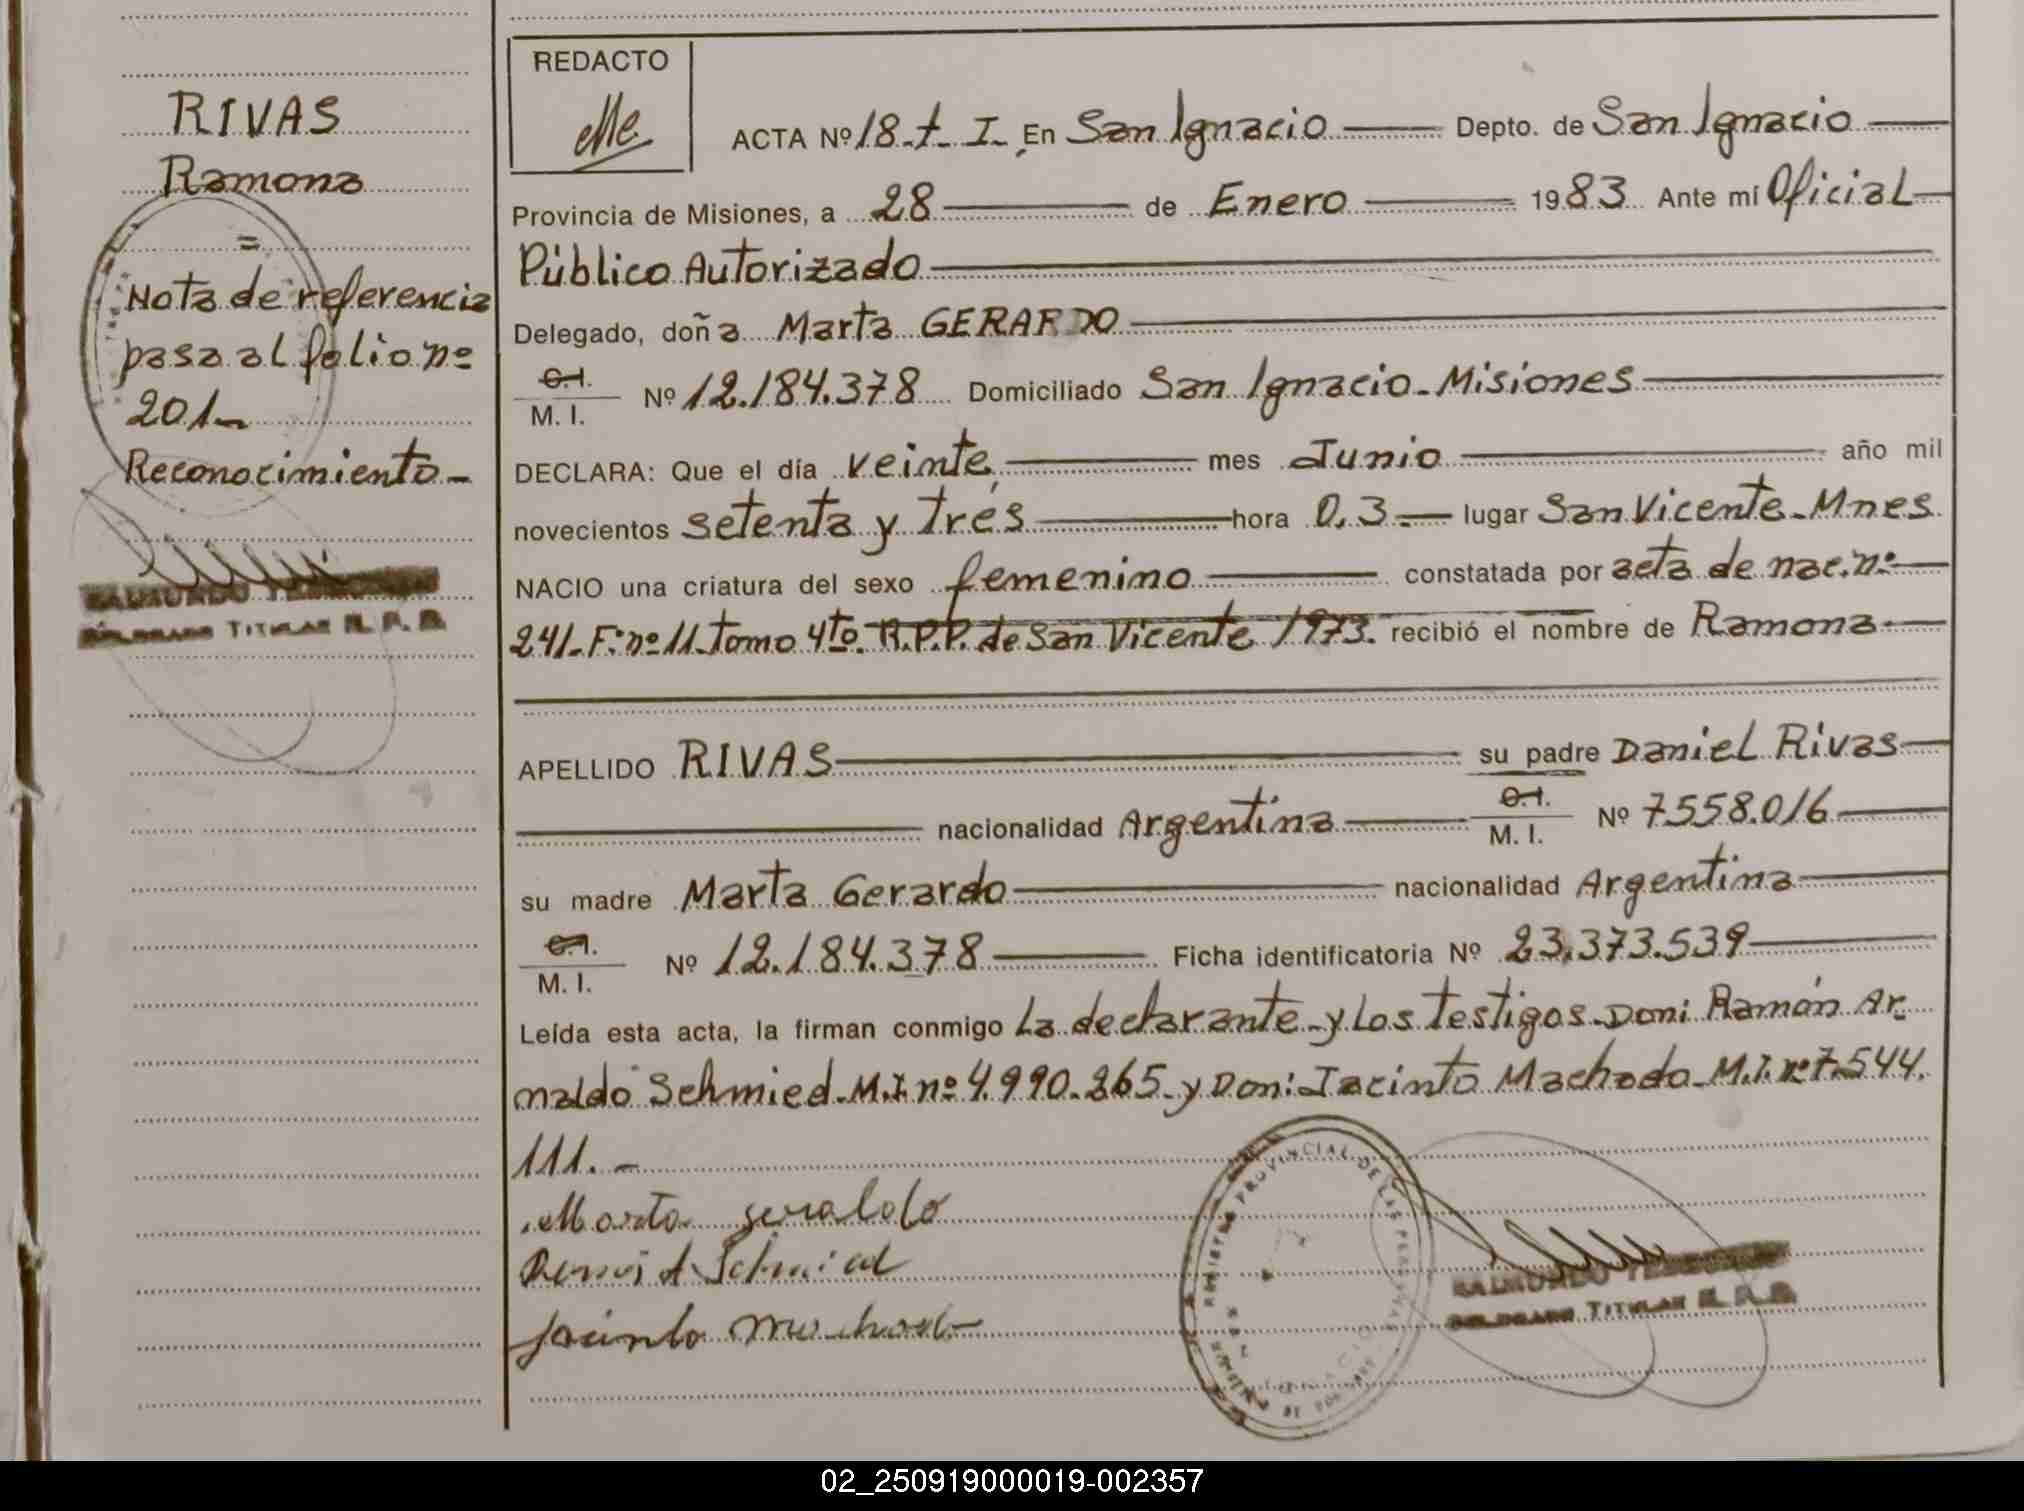 RIVAS
Ramona
=
Nota de referencia
pasa al folio nº
201-
Reconocimiento-
DELEGADO TITULAR R. P. P.
REDACTO
ACTA Nº 18-t- I- En San Ignacio Depto. de San Ignacio
Provincia de Misiones, a 28 de Enero 1983 Ante mí Oficial
Público Autorizado
Delegado, doña Marta GERARDO
C.I.
M. I. Nº 12.184.378 Domiciliado San Ignacio-Misiones
DECLARA: Que el día veinte mes Junio año mil
novecientos setenta y trés hora 0,3.- lugar San Vicente-Mnes
NACIO una criatura del sexo femenino constatada por acta de nac. nº
241-Fº nº 11-Tomo 4to. R.P.P. de San Vicente 1973. recibió el nombre de Ramona
APELLIDO RIVAS su padre Daniel Rivas
nacionalidad Argentina C.I. M. I. Nº 7558.016
su madre Marta Gerardo nacionalidad Argentina
C.I.
M. I. Nº 12.184.378 Ficha identificatoria Nº 23,373.539
Leída esta acta, la firman conmigo La declarante-y Los testigos-Don: Ramón Ar-
naldo Schmied-M.I. nº 4.990.265-y Don: Jacinto Machado-M.I. nº 7.544.
111.-
Marta
Schmied
Jacinto
REGISTRO PROVINCIAL DE LAS PERSONAS
RAIMUNDO
DELEGADO TITULAR R. P. P.
02_250919000019-002357